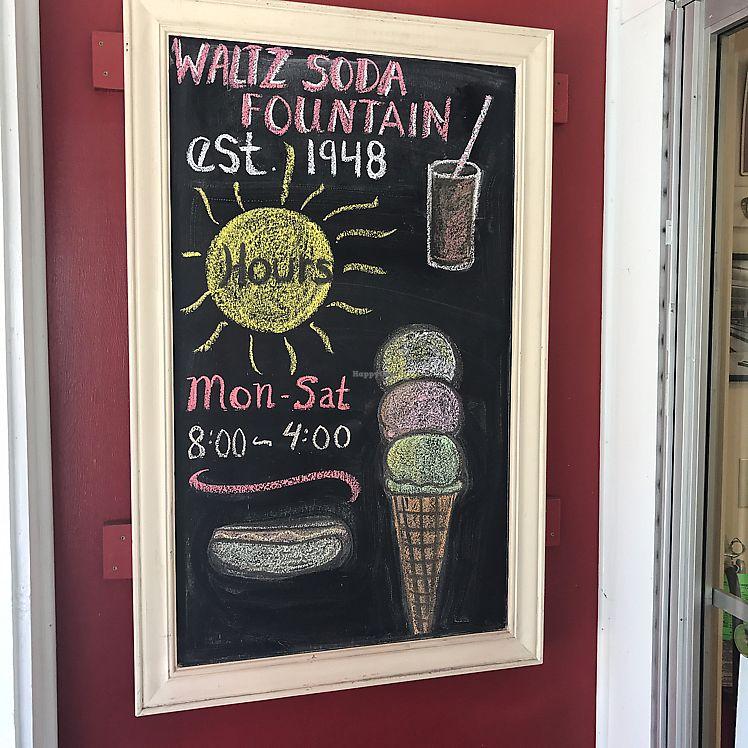 WALTZ SODA
FOUNTAIN
est. 1948
Hours
Mon-Sat
8:00 - 4:00